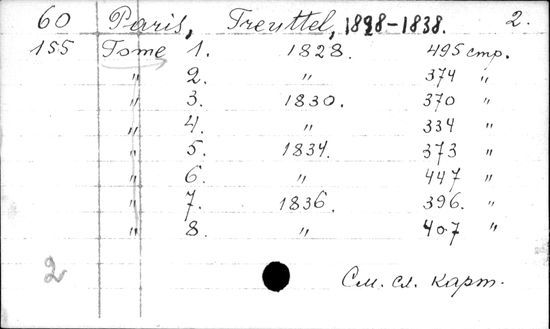 60 Paris, Treuttel, 1828-1838. 2.
155 Tome 1. 1828. 495 стр.
" 2. " 374 "
" 3. 1830. 370 "
" 4. " 334 "
" 5. 1834. 373 "
" 6. " 447 "
" 7. 1836. 396. "
" 8. " 407 "
2 См. сл. карт.